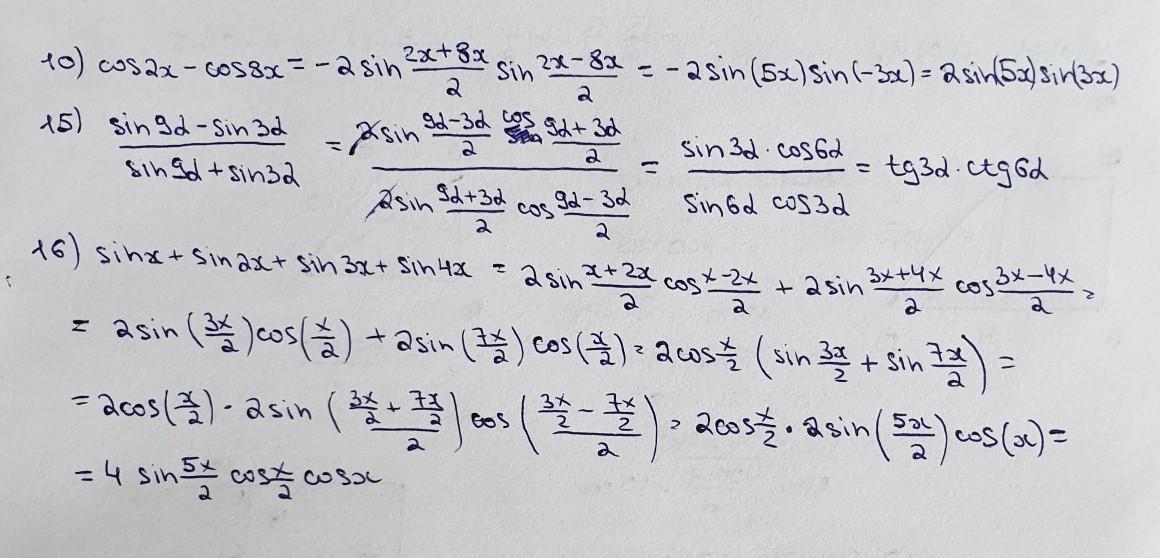 10) cos2x - cos8x = -2sin (2x+8x)/2 sin (2x-8x)/2 = -2sin(5x)sin(-3x) = 2sin(5x)sin(3x)
15) (sin9α - sin3α)/(sin9α + sin3α) = (2sin (9α-3α)/2 cos (9α+3α)/2)/(2sin (9α+3α)/2 cos (9α-3α)/2) = (sin3α · cos6α)/(sin6α cos3α) = tg3α · ctg6α
16) sinx + sin2x + sin3x + sin4x = 2sin (x+2x)/2 cos (x-2x)/2 + 2sin (3x+4x)/2 cos (3x-4x)/2 =
= 2sin(3x/2)cos(x/2) + 2sin(7x/2)cos(x/2) = 2cos x/2 (sin 3x/2 + sin 7x/2) =
= 2cos(x/2) · 2sin((3x/2 + 7x/2)/2) cos((3x/2 - 7x/2)/2) = 2cos x/2 · 2sin(5x/2)cos(x) =
= 4 sin 5x/2 cos x/2 cosx